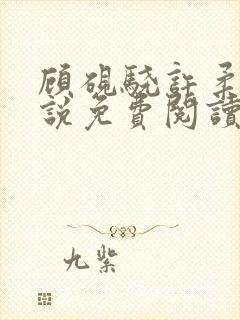 顾硯驍許柔
說免費閱讀
九紫